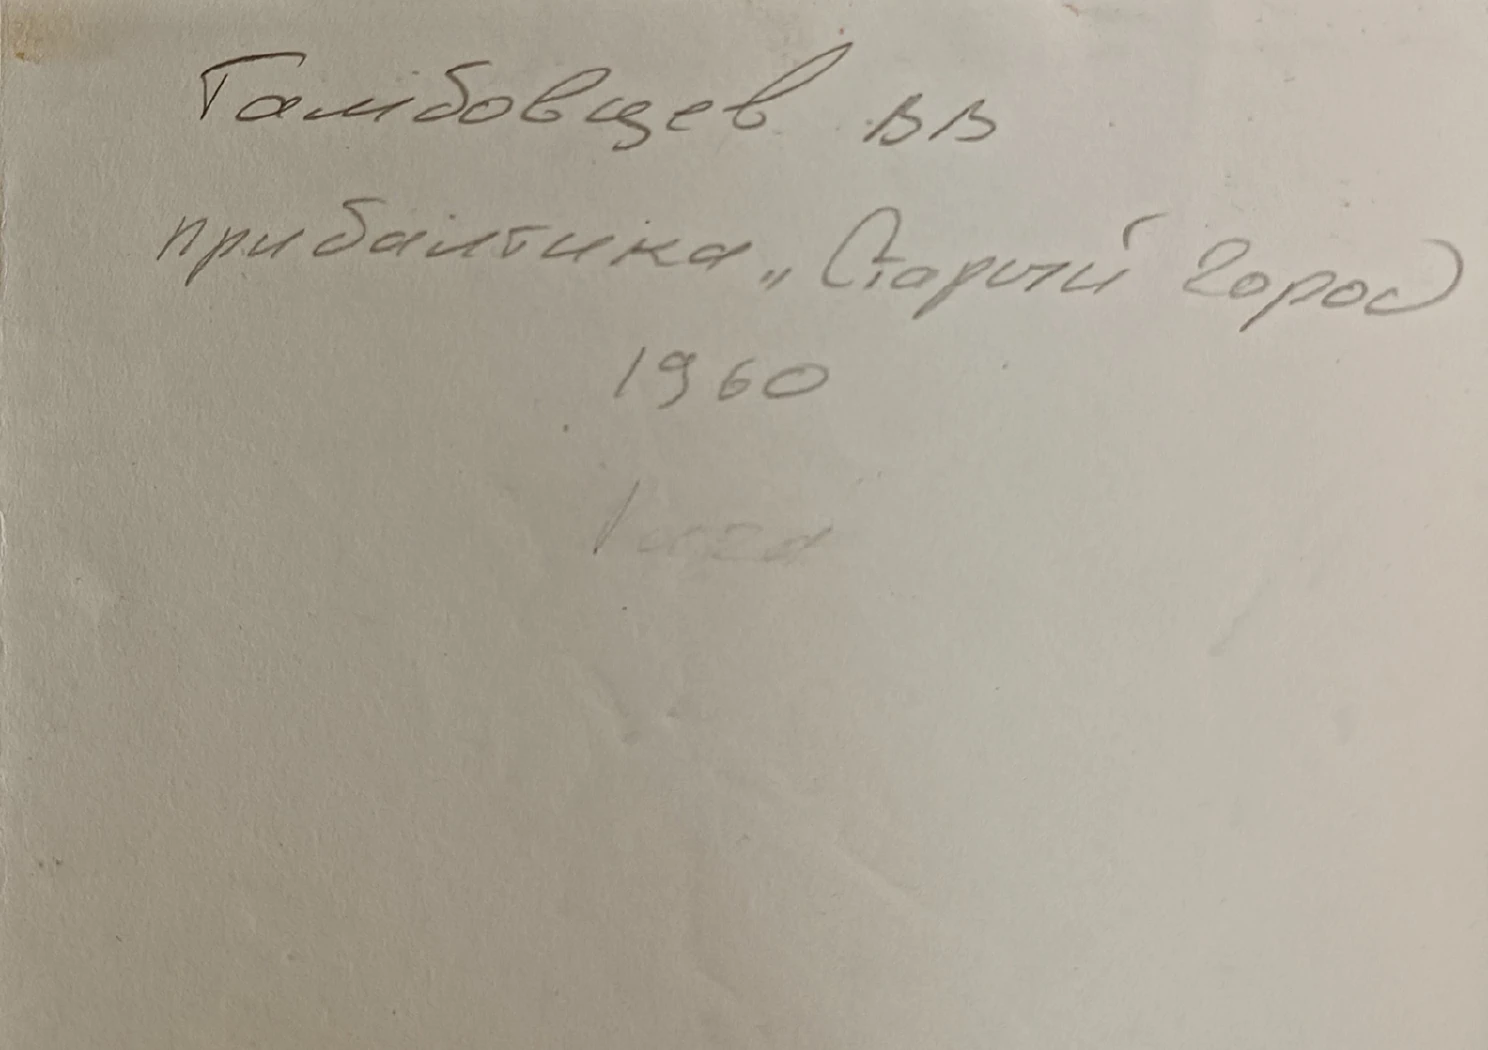 Тамбовцев ВВ
прибалтика „Старый город
1960